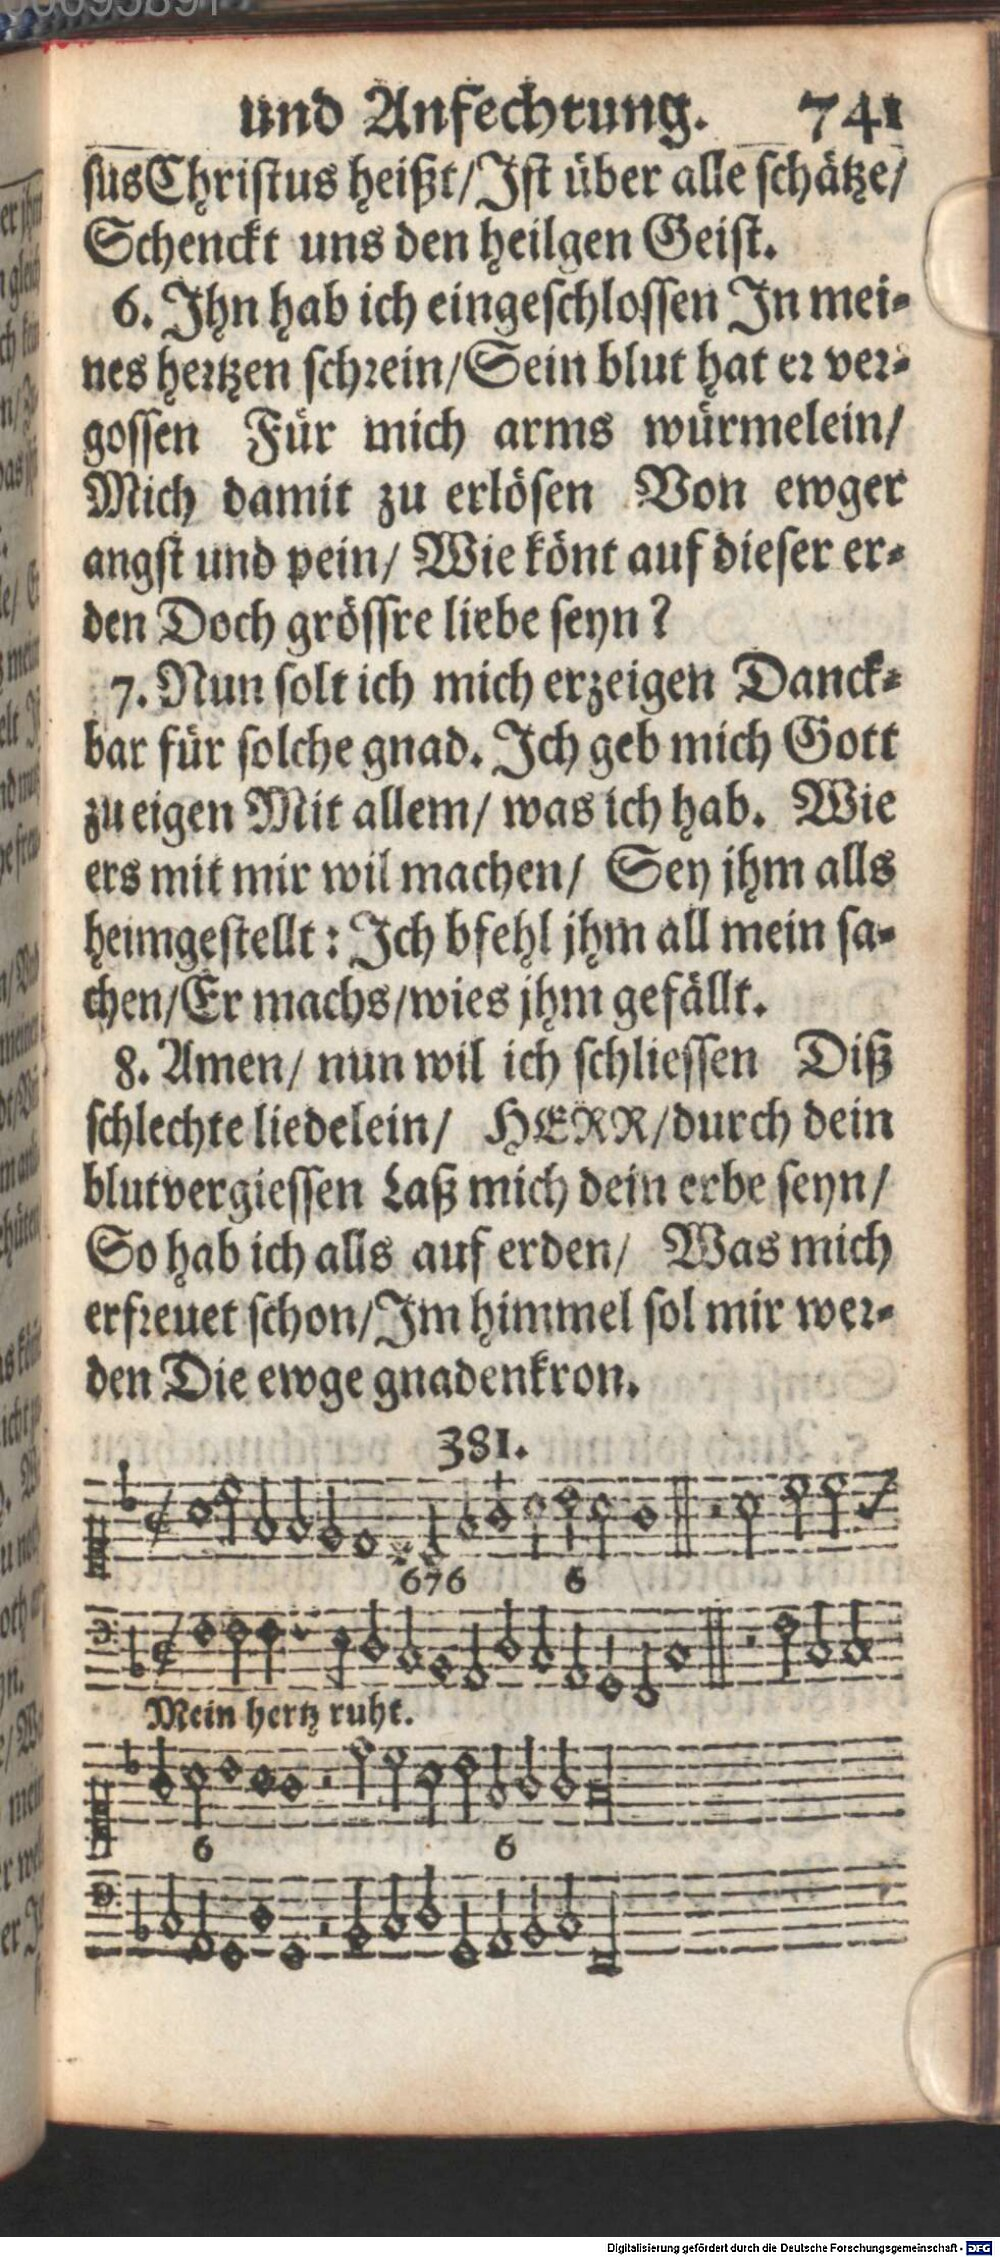 und Anfechtung. 741
sus Christus heißt/ Ist über alle schätze/
Schenckt uns den heilgen Geist.
6. Ihn hab ich eingeschlossen In mei-
nes hertzen schrein/ Sein blut hat er ver-
gossen Für mich arms würmelein/
Mich damit zu erlösen Von ewger
angst und pein/ Wie könt auf dieser er-
den Doch grössre liebe seyn?
7. Nun solt ich mich erzeigen Danck-
bar für solche gnad. Ich geb mich Gott
zu eigen Mit allem/ was ich hab. Wie
ers mit mir wil machen/ Sey jhm alls
heimgestellt: Ich bfehl jhm all mein sa-
chen/ Er machs/ wies jhm gefällt.
8. Amen/ nun wil ich schliessen Diß
schlechte liedelein/ HERR/ durch dein
blutvergiessen Laß mich dein erbe seyn/
So hab ich alls auf erden/ Was mich
erfreuet schon/ Im himmel sol mir wer-
den Die ewge gnadenkron.
381.
676 6
Mein hertz ruht.
6 6
Digitalisierung gefördert durch die Deutsche Forschungsgemeinschaft - DFG